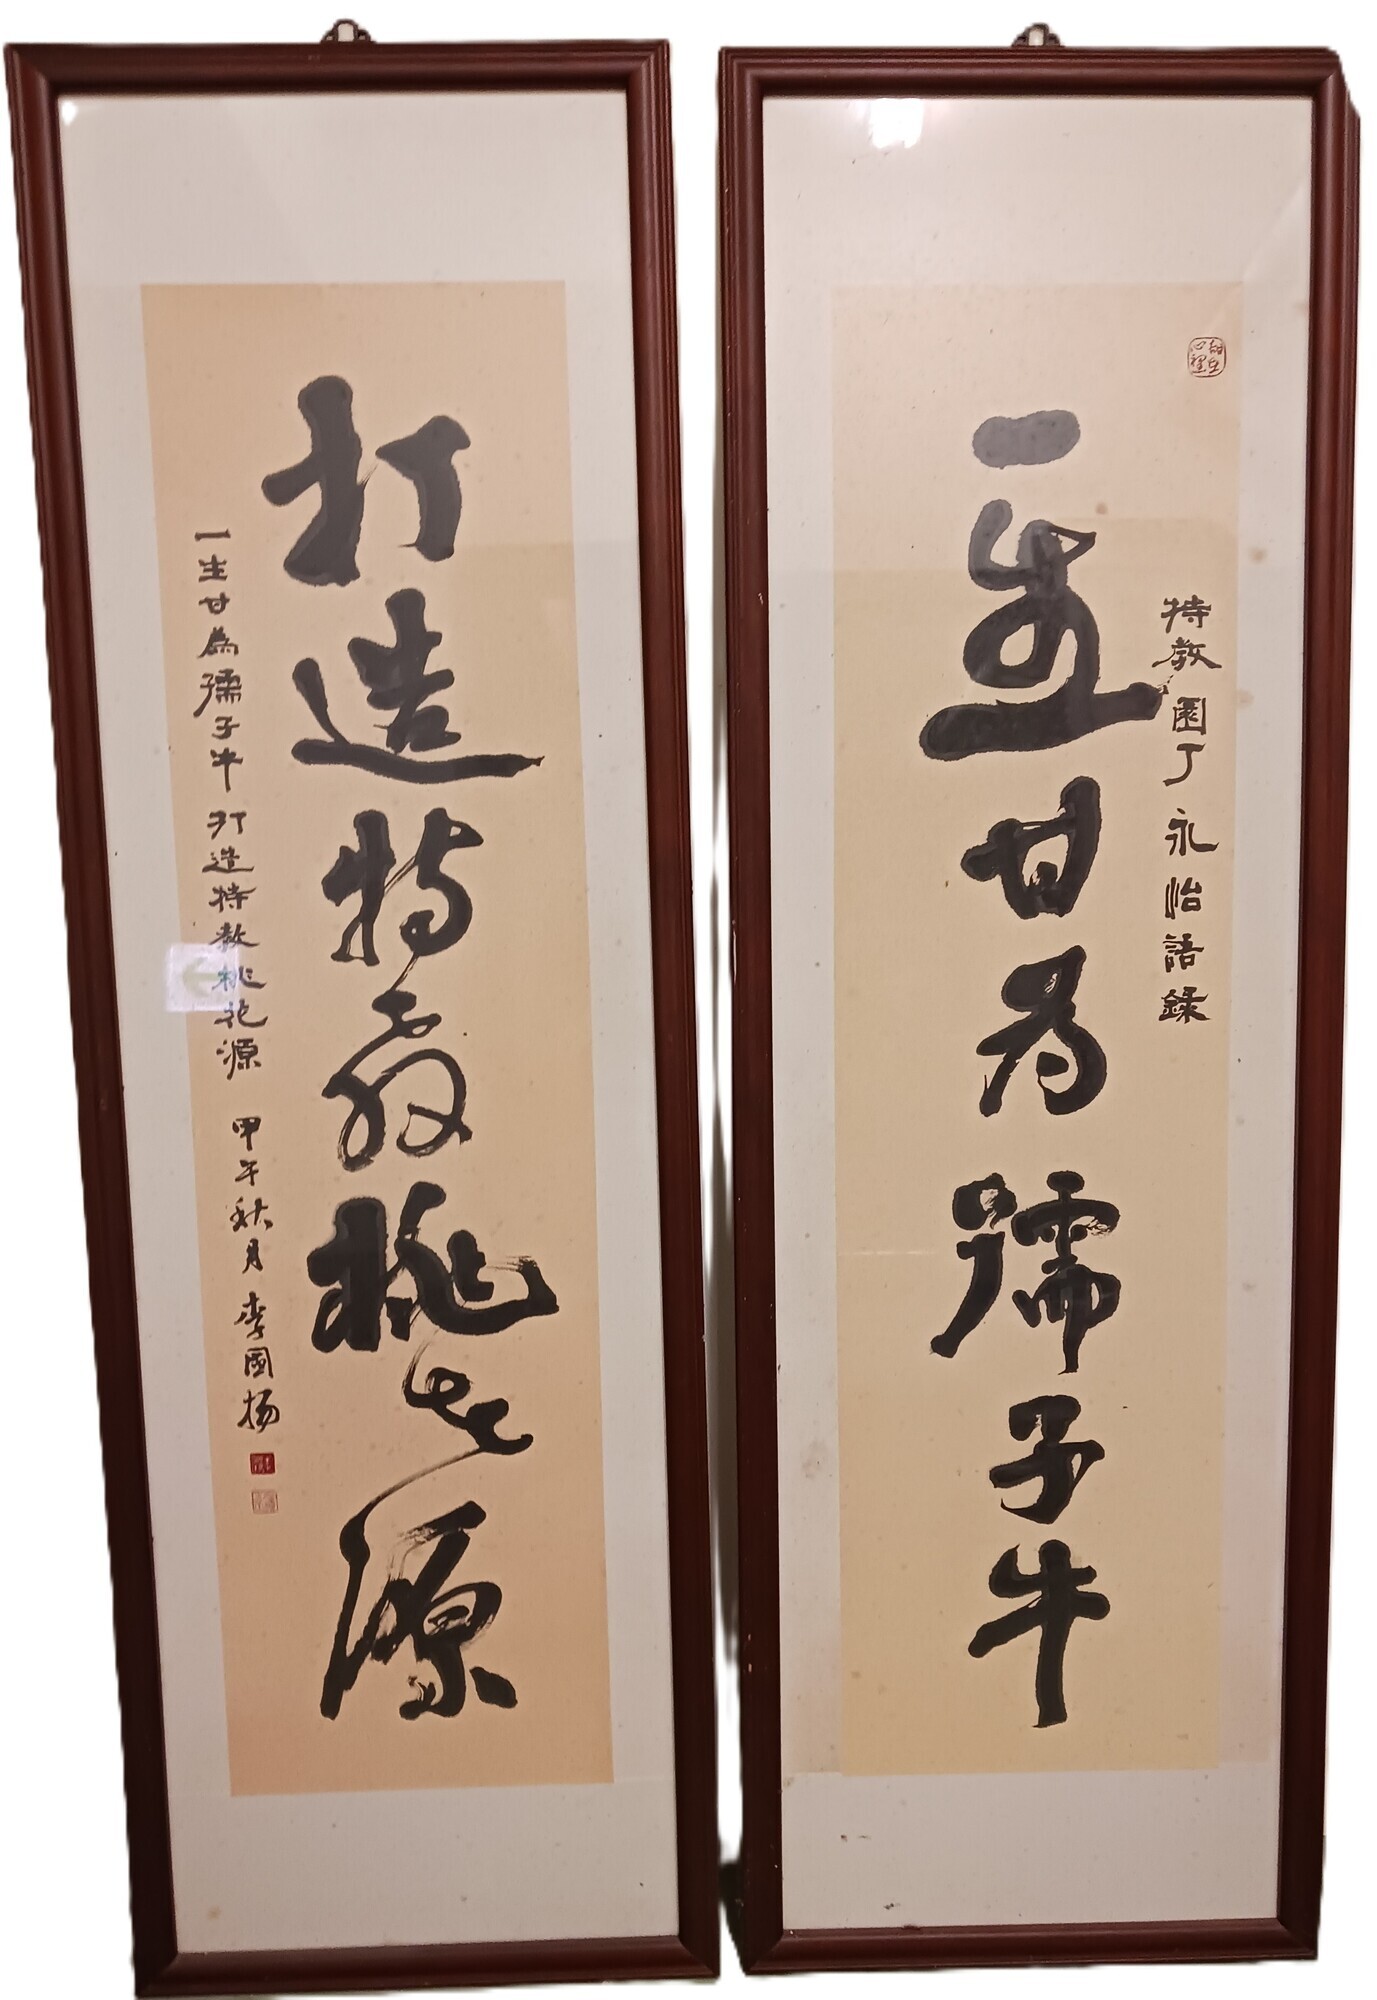 特教園丁永怡語錄
一生甘為孺子牛
打造特教桃花源
一生甘為孺子牛打造特教桃花源 甲午秋月李國揚